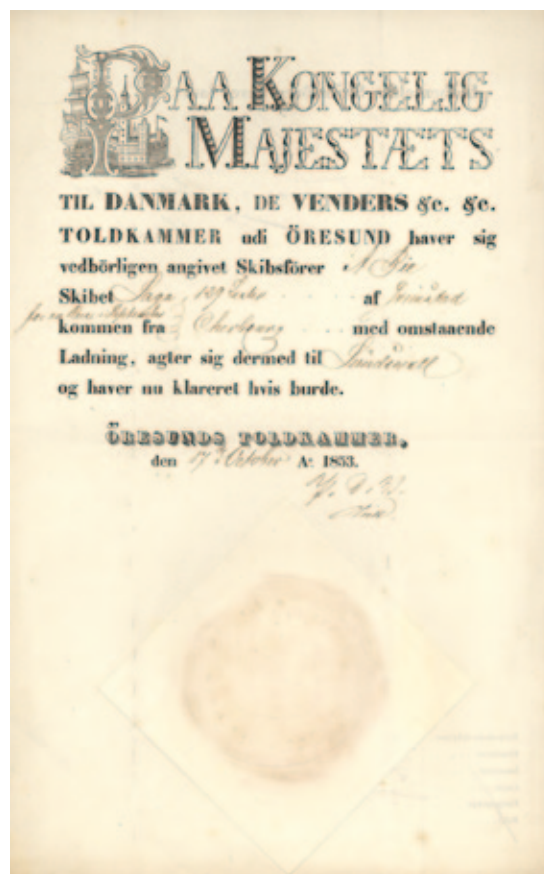 PAA KONGELIG
MAJESTÆTS
TIL DANMARK, DE VENDERS &c. &c.
TOLDKAMMER udi ÖRESUND haver sig
vedbörligen angivet Skibsförer N
Skibet Saga 139 Lester af Grimstad
kommen fra Cherbourg med omstaaende
Ladning, agter sig dermed til Sundsvall
og haver nu klareret hvis burde.
ÖRESUNDS TOLDKAMMER,
den 17 October A: 1853.